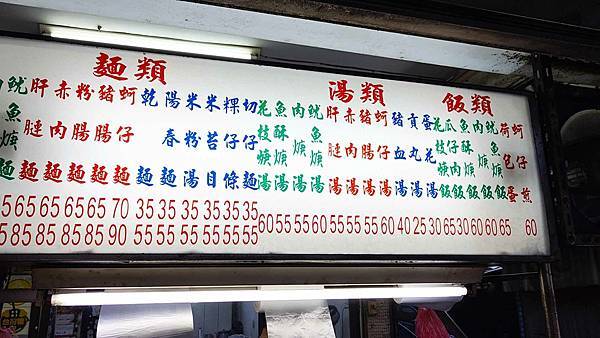 麵類
湯類
飯類
魷魚焿麵
肝膇麵
赤肉麵
粉腸麵
豬腸麵
蚵仔麵
乾麵
陽春麵
米粉湯
米苔目
粿仔條
切仔麵
花枝焿湯
魚酥焿湯
肉焿湯
魷魚焿湯
肝膇湯
赤肉湯
豬腸湯
蚵仔湯
豬血湯
貢丸湯
蛋花湯
花枝焿飯
瓜仔肉飯
魚酥焿飯
肉焿飯
魷魚焿飯
荷包蛋
蚵仔煎
5 65 65 65 65 70 35 35 35 35 35 35 60 55 55 60 55 55 55 60 40 25 30 65 30 60 60 65 60
5 85 85 85 85 90 55 55 55 55 55 55